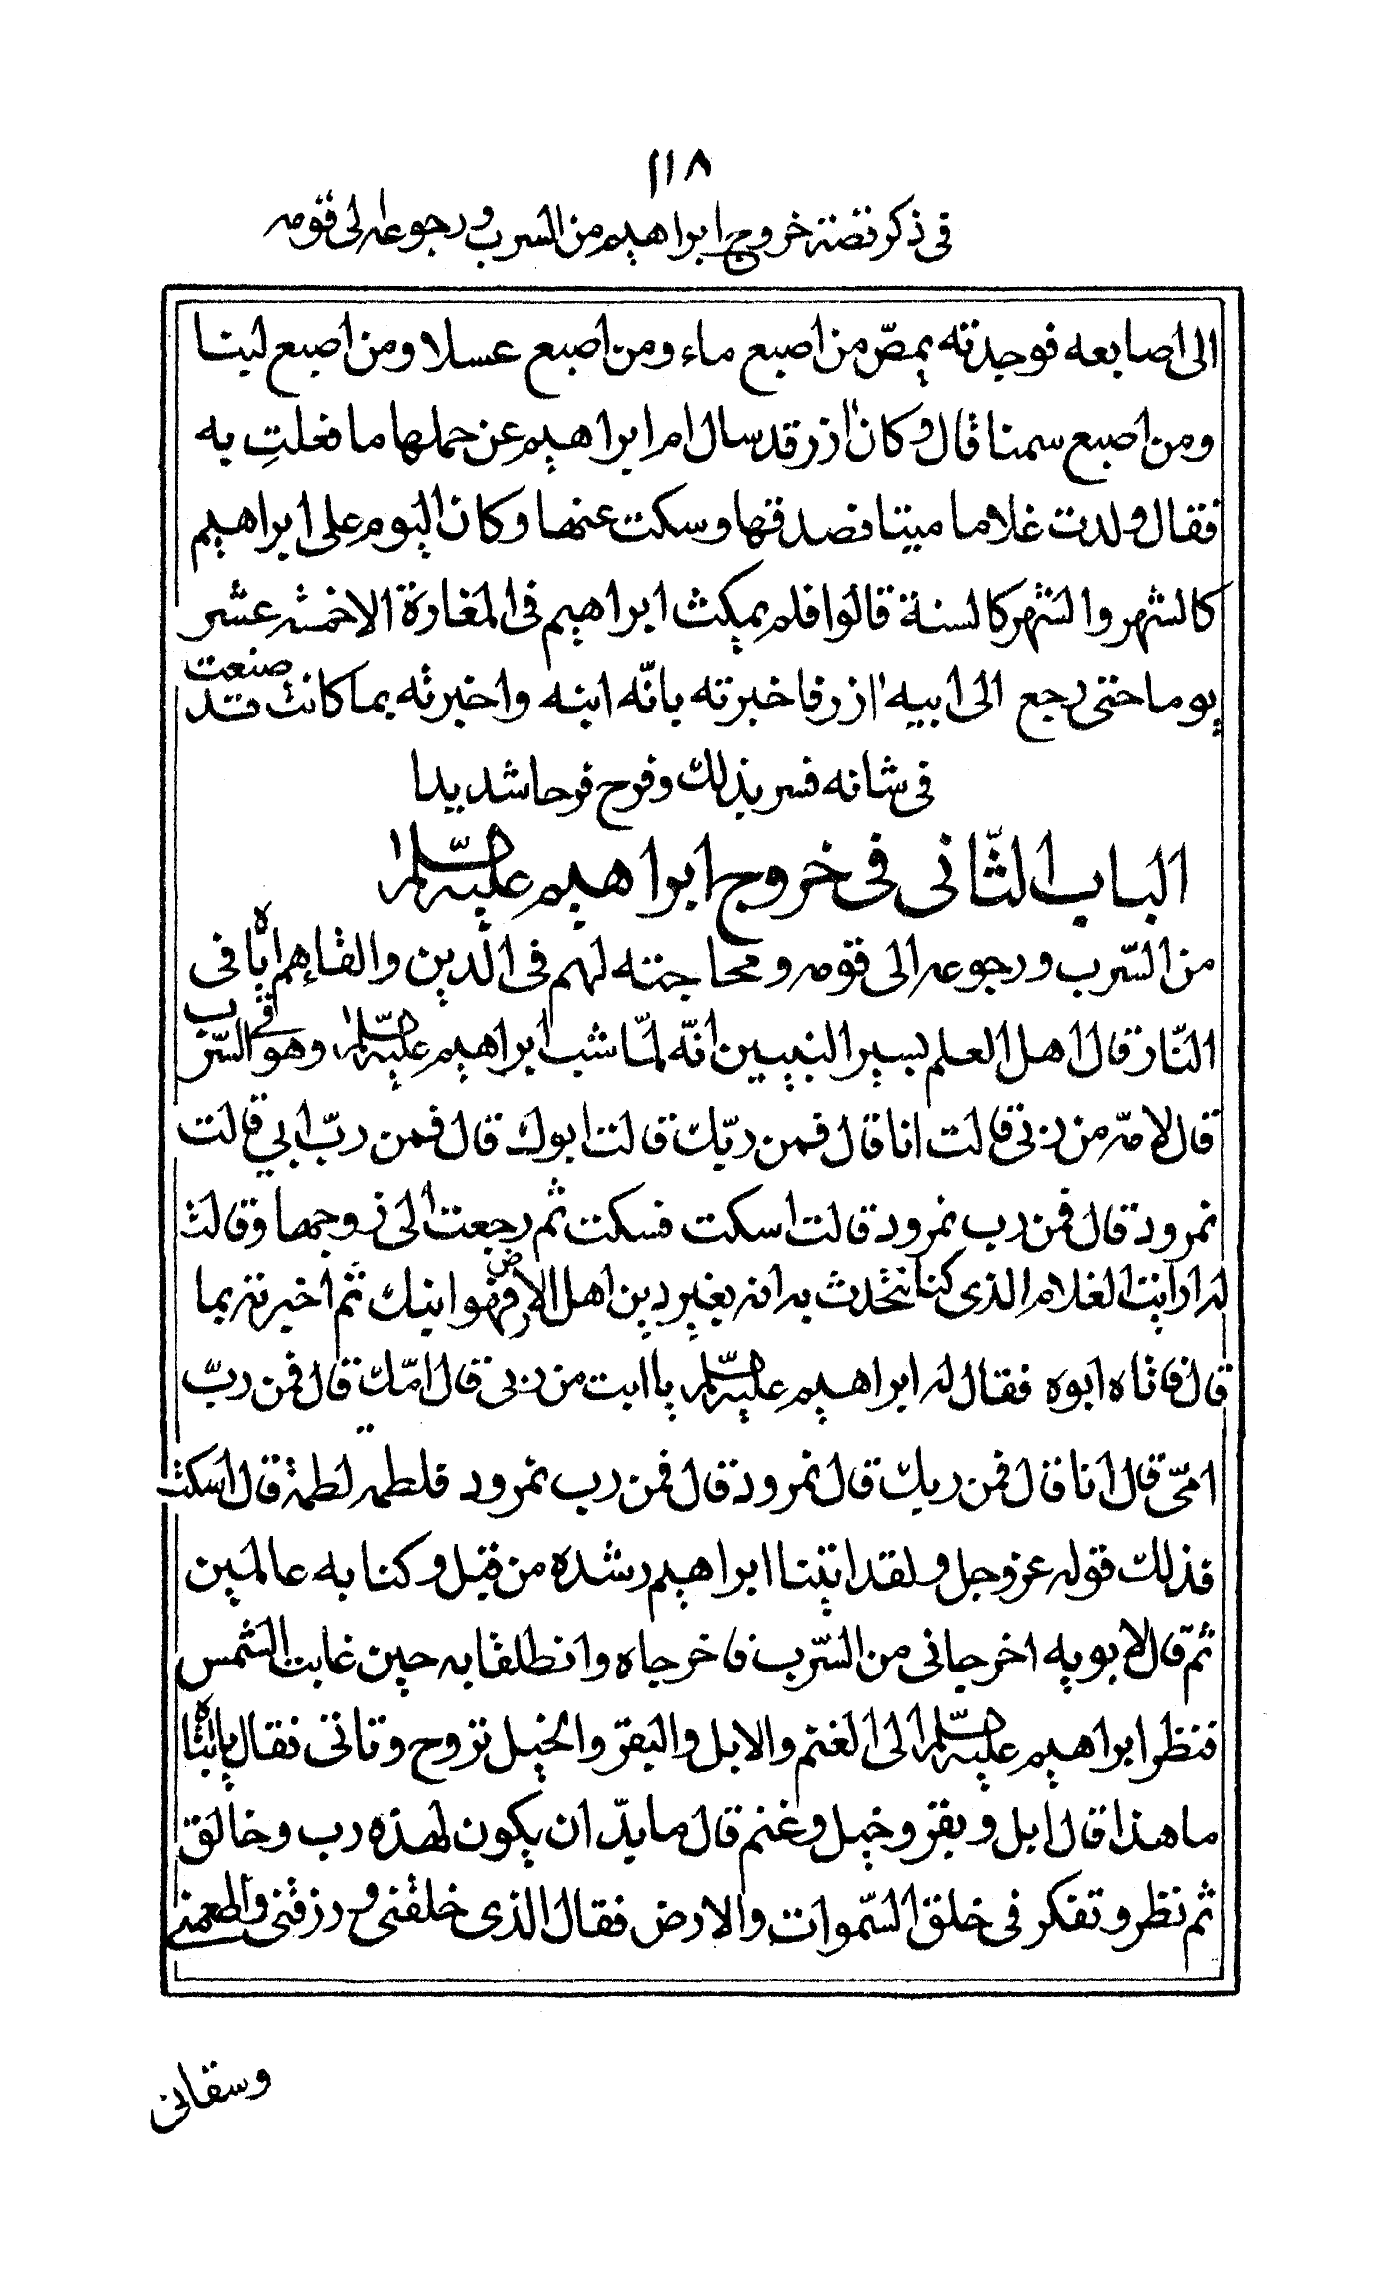 ١١٨
في ذكر قصة خروج ابراهيم من السرب ورجوعه الى قومه
الى اصابعه فوجدته يمصّ من اصبع ماء ومن اصبع عسلا ومن اصبع لبنا
ومن اصبع سمنا قال وكان ازر قد سال ام ابراهيم عن حملها ما فعلت به
فقال ولدت غلاما ميتا فصدقها وسكت عنها وكان اليوم على ابراهيم
كالشهر والشهر كالسنة قالوا فلم يمكث ابراهيم في المغارة الا خمسة عشر
يوما حتى رجع الى ابيه ازر فاخبرته بانّه ابنه واخبرته بما كانت قد صنعت
في شانه فسر بذلك وفرح فرحا شديدا
الباب الثّاني في خروج ابراهيم عليه السّلام
من السّرب ورجوعه الى قومه ومحاجته لهم في الدين والقاءهم اياه في
النّار قال اهل العلم بسير النبيين انّه لمّا شب ابراهيم عليه السّلام وهو في السّرب
قال لامّه من ربي قالت انا قال فمن ربّك قالت ابوك قال فمن ربّ ابي قالت
نمرود قال فمن رب نمرود قالت اسكت فسكت ثم رجعت الى زوجها وقالت
له ارايت الغلام الذي كنا نتحدث به انه يغير دين اهل الارض فهو ابنك ثم اخبرته بما
قال فاتاه ابوه فقال له ابراهيم عليه السّلام يا ابت من ربي قال امّك قال فمن ربّ
امّي قال انا قال فمن ربك قال نمرود قال فمن رب نمرود فلطمه لطمة قال اسكت
فذلك قوله عز وجل ولقد اتينا ابراهيم رشده من قبل وكنا به عالمين
ثمّ قال لابويه اخرجاني من السّرب فاخرجاه وانطلقا به حين غابت الشمس
فنظر ابراهيم عليه السّلام الى الغنم والابل والبقر والخيل تروح وتاتي فقال يا ابتاه
ما هذا قال ابل وبقر وخيل وغنم قال ما بدّ ان يكون لهذه رب وخالق
ثم نظر وتفكر في خلق السّموات والارض فقال الذي خلقني ورزقني واطعمني
وسقاني